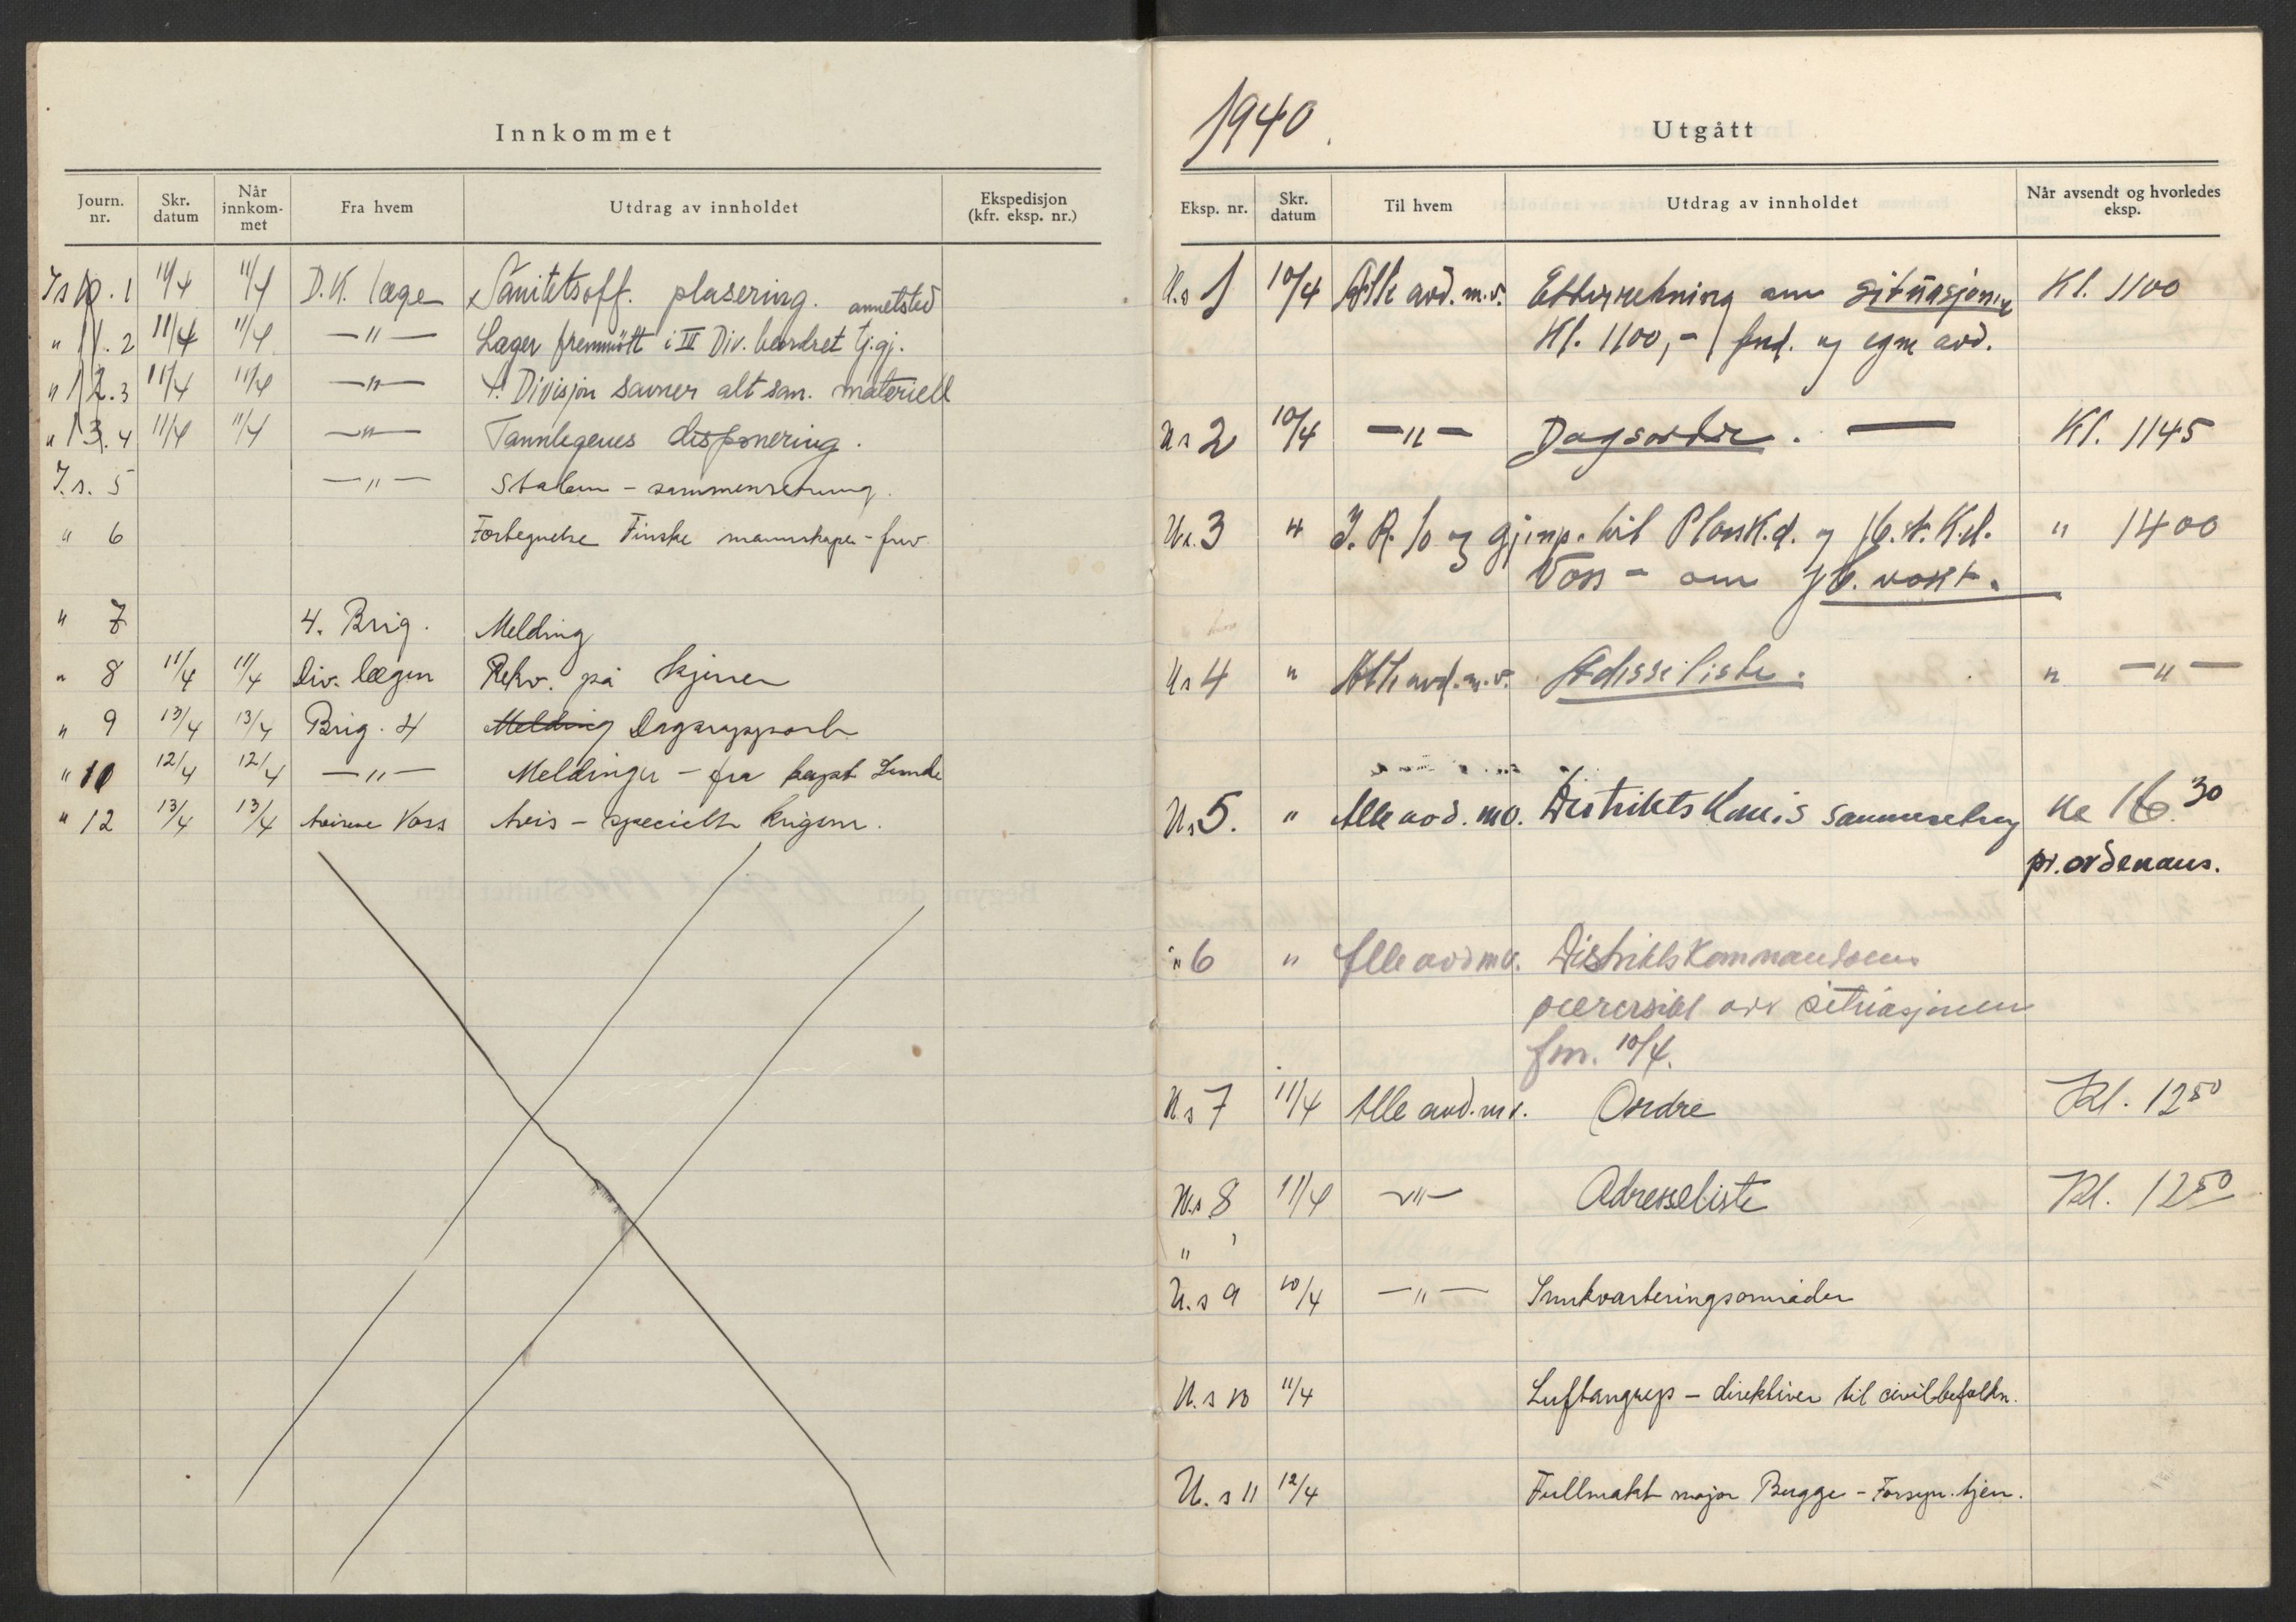 Innkommet
Journ. nr. Skr. datum Når innkom-met Fra hvem Utdrag av innholdet Ekspedisjon (kfr. eksp. nr.)
Js 10. 1 11/4 11/4 D.K. læge Sanitetsoff. plasering. annetsted
" 11. 2 11/4 11/4 —"— Læger fremmött i IV Div. beordret tj.gj.
" 12. 3 11/4 11/4 —"— 4. Divisjon savner alt san. materiell
" 13. 4 11/4 11/4 —"— Tannlegenes disponering.
J.s. 5 —"— Staben - sammensetning.
" 6 Fortegnelse Finske mannskaper - friv.
" 7 4. Brig. Melding
" 8 11/4 11/4 Div. lægen Rekv. på skjener
" 9 13/4 13/4 Brig. 4 Melding Dagsrapport
" 10 12/4 12/4 —"— Meldinger - fra kapt Lunde
" 12 13/4 13/4 Avisene Voss Avis - specielt krigen.
1940.
Utgått
Eksp. nr. Skr. datum Til hvem Utdrag av innholdet Når avsendt og hvorledes eksp.
U.s 1 10/4 Alle avd. m.v. Etterretning om situasjonen Kl. 1100
Kl. 1100,- fnd. og egne avd.
Us 2 10/4 —"— Dagsordre. — Kl. 1145
Us. 3 " I. R. 10 og gj. insp. til Plassk.d. og Jb. t. K.d. " 1400
Voss - om Jb. vakt.
Us 4 " Alle avd. m.v. Adresseliste. " —"—
Us 5. " Alle avd. mv. Distriktskom.s sammensetning Kl 16.30
pr. ordonans.
" 6 " Alle avd mv. Distriktskommandoens
oversikt over situasjonen
fm. 10/4.
U.s 7 11/4 Alle avd. mv. Ordre Kl. 1250
U.s 8 11/4 —"— Adresseliste Kl. 1250
"
U.s 9 10/4 —"— Innkvarteringsområder
U.s 10 11/4 Luftangrep - direktiver til civilbefolkn.
U. s 11 12/4 Fullmakt major Bugge - Forsyn. tjen.